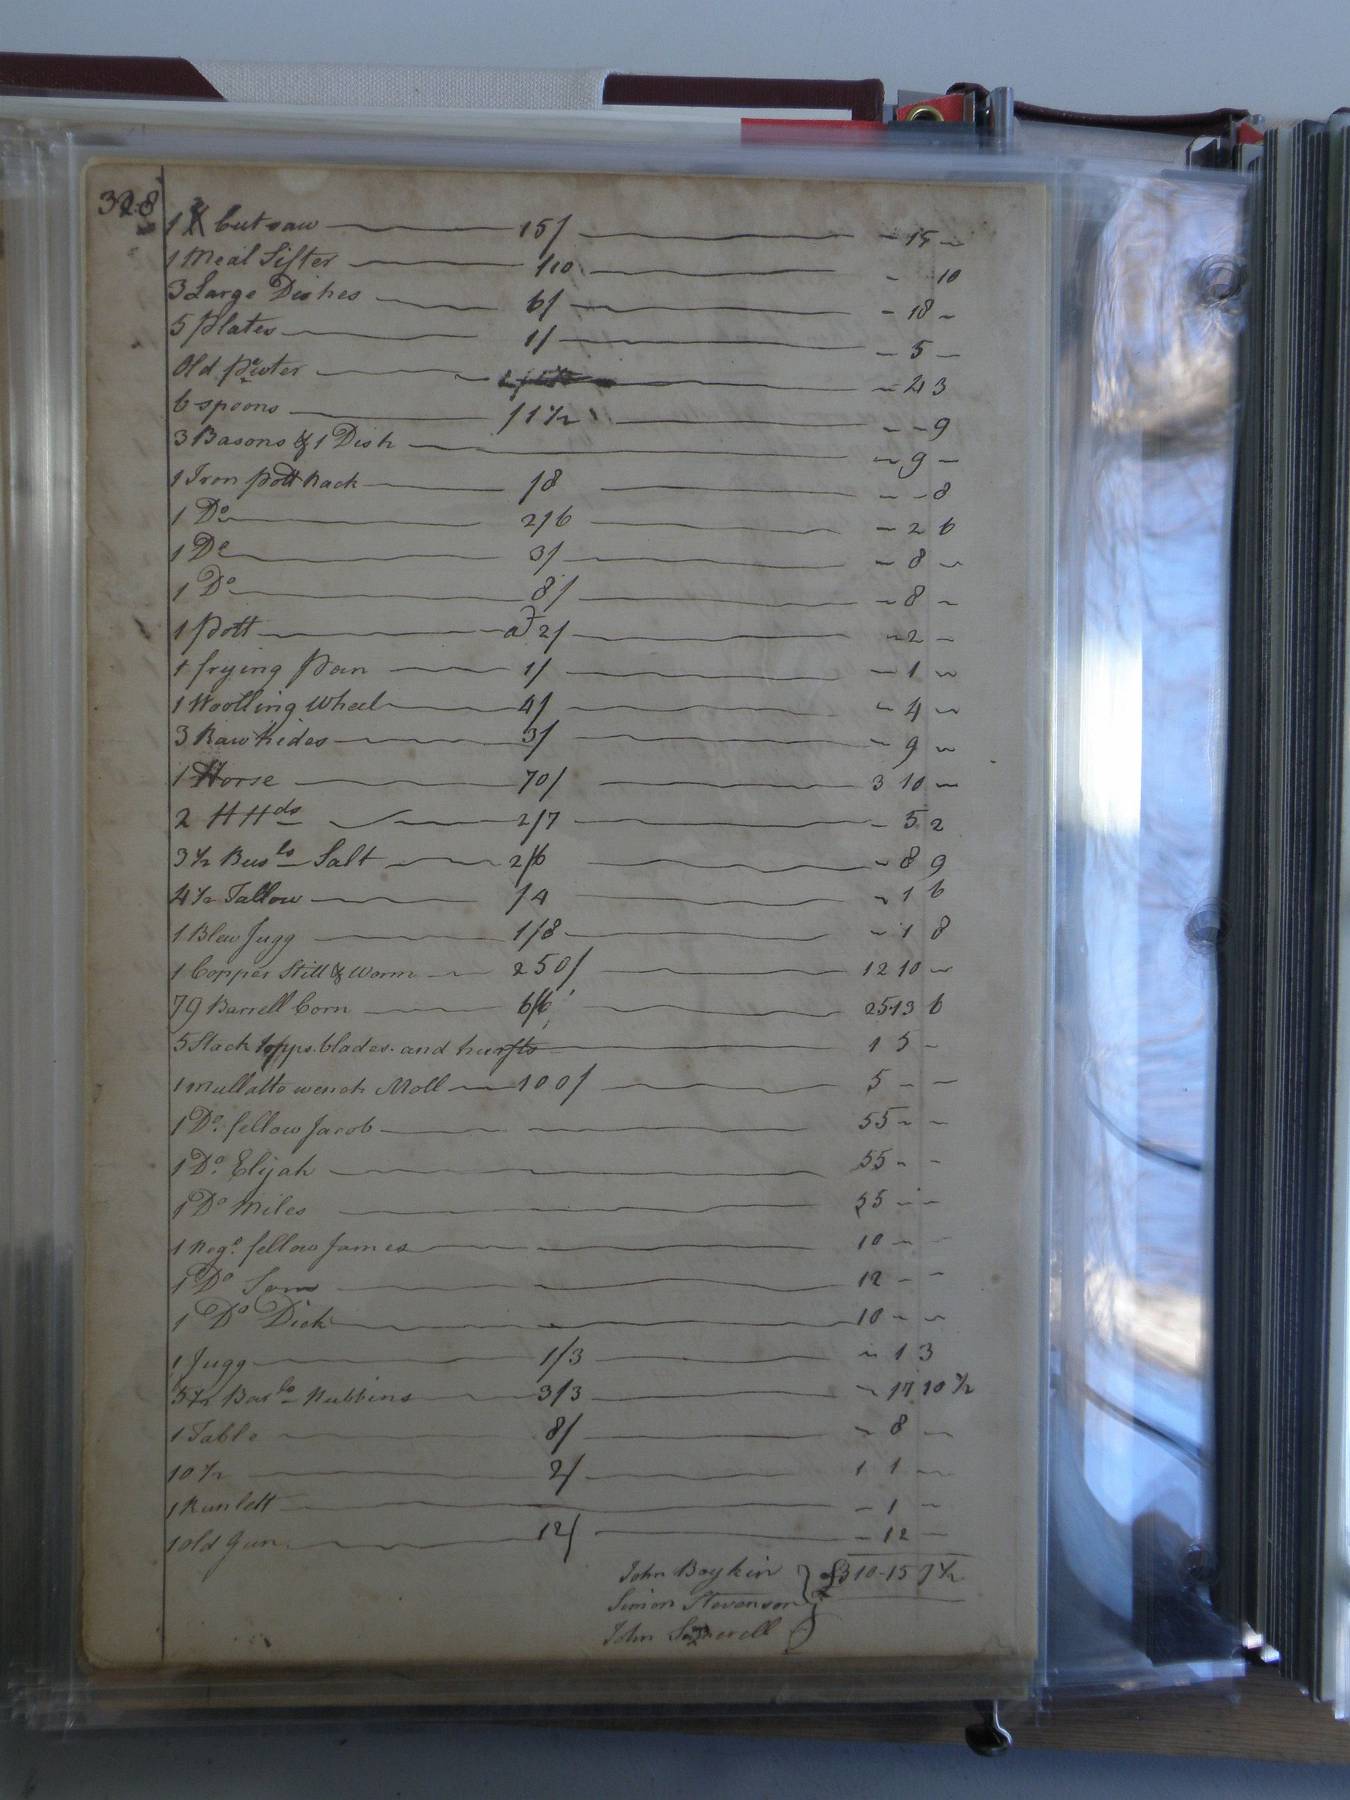 328
1 X Cut saw 15/ - 15 -
1 Meal Sifter /10 - 10
3 Large Dishes 6/ - 18 -
5 Plates 1/ - 5 -
Old pewter - 4 3
6 spoons /1½ - - 9
3 Basons & 1 Dish - 9 -
1 Iron Pott Rack /8 - - 8
1 Do 2/6 - 2 6
1 Do - 8 -
1 Do 8/ - 8 -
1 Pott at 2/ - 2 -
1 frying Pan 1/ - 1 -
1 Woolling Wheel 4/ - 4 -
3 Raw hides 3/ - 9 -
1 Horse 70/ 3 10 -
2 HHds 2/7 - 5 2
3½ Busls Salt 2/6 - 8 9
4½ Tallow /4 - 1 6
1 Blew Jugg 1/8 - 1 8
1 Copper Still & Worm 250/ 12 10 -
79 Barrell Corn 6/6 25 13 6
5 Stack topps. blades. and 1 5 -
1 mullatto wench Moll 100/ 5 - -
1 Do. fellow Jacob 55 - -
1 Do. Elijah 55 - -
1 Do Miles 55 - -
1 Nego. fellow James 10 - -
1 Do Sam 12 - -
1 Do Dick 10 - -
1 Jugg 1/3 - 1 3
5½ Barls Nubbins 3/3 - 17 10½
1 Table 8/ - 8 -
10½ 2/ 1 1 -
1 Runlett - 1 -
1 old Gun 12/ - 12 -
John Boykin £310-15 7½
Simon Stevenson
John